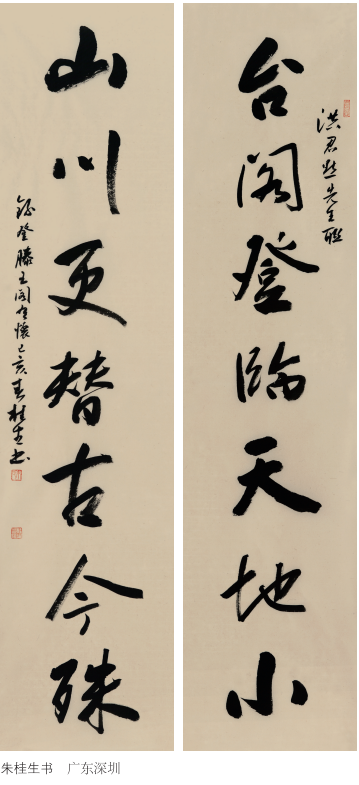 洪君先生联
台阁登临天地小
山川更替古今殊
登滕王阁有怀己亥春桂生书
朱桂生书 广东深圳